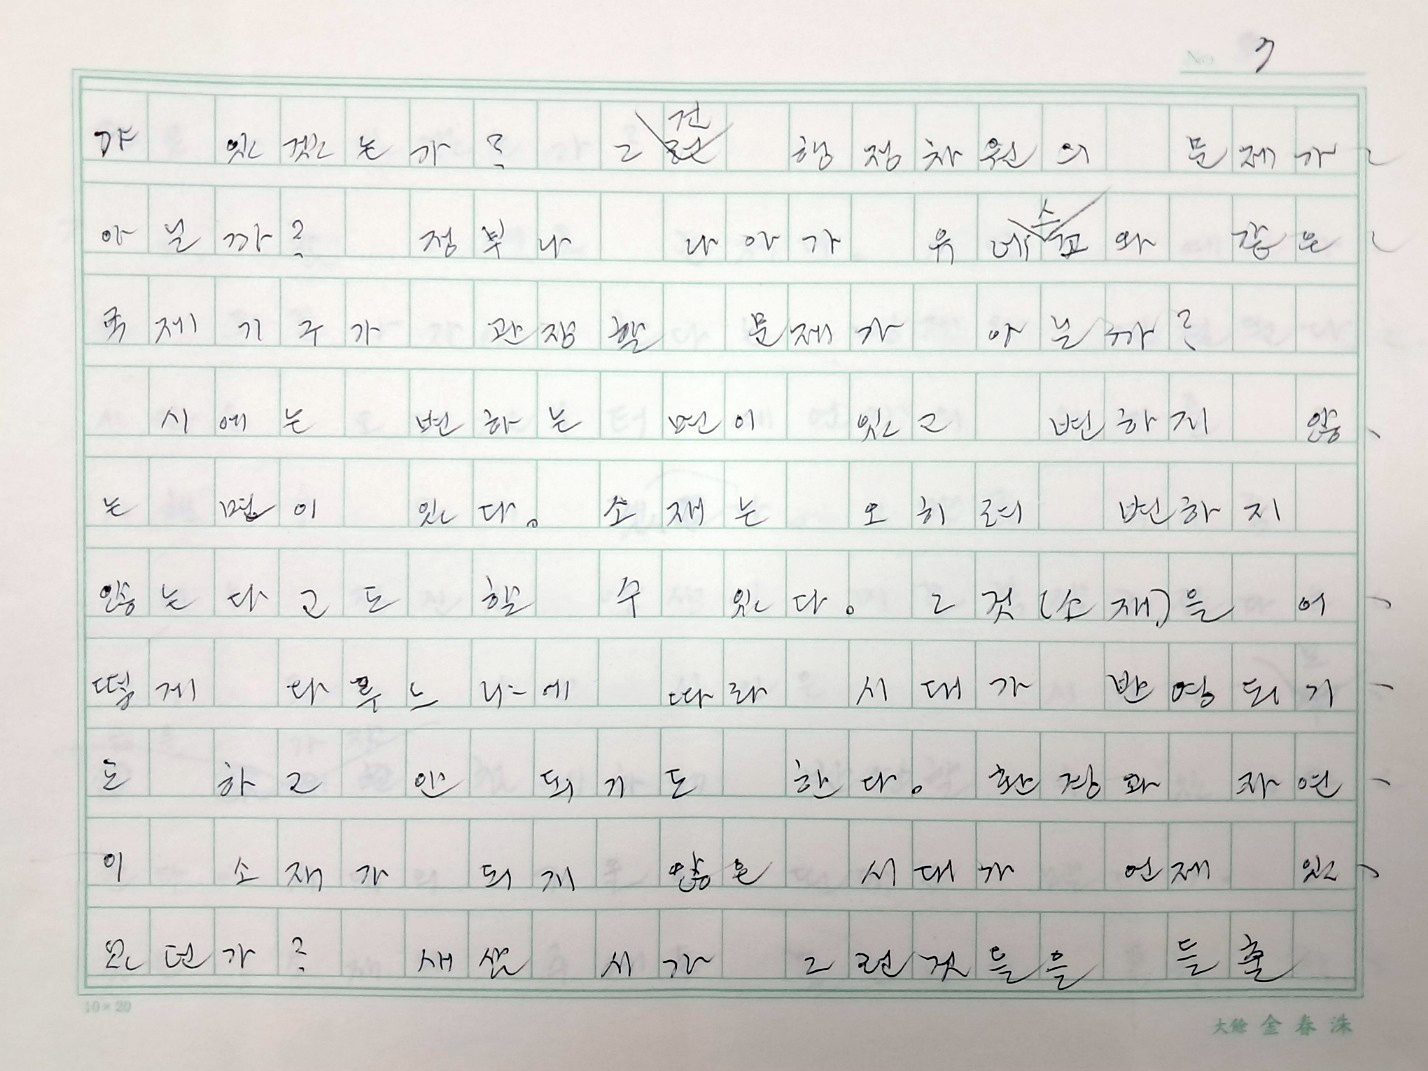 No. 7
까 있겠는가? 그건 행정차원의 문제가
아닐까? 정부나 나아가 유네스코와 같은
국제기구가 관장할 문제가 아닐까?
시에는 변하는 면이 있고 변하지 않
는 면이 있다。 소재는 오히려 변하지
않는다고도 할 수 있다。 그것(소재)을 어
떻게 다루느냐에 따라 시대가 반영되기
도 하고 안 되기도 한다。 환경와 자연
이 소재가 되지 않은 시대가 언제 있
었던가? 새삼 시가 그런것들을 들출
10×20
大餘 金春洙